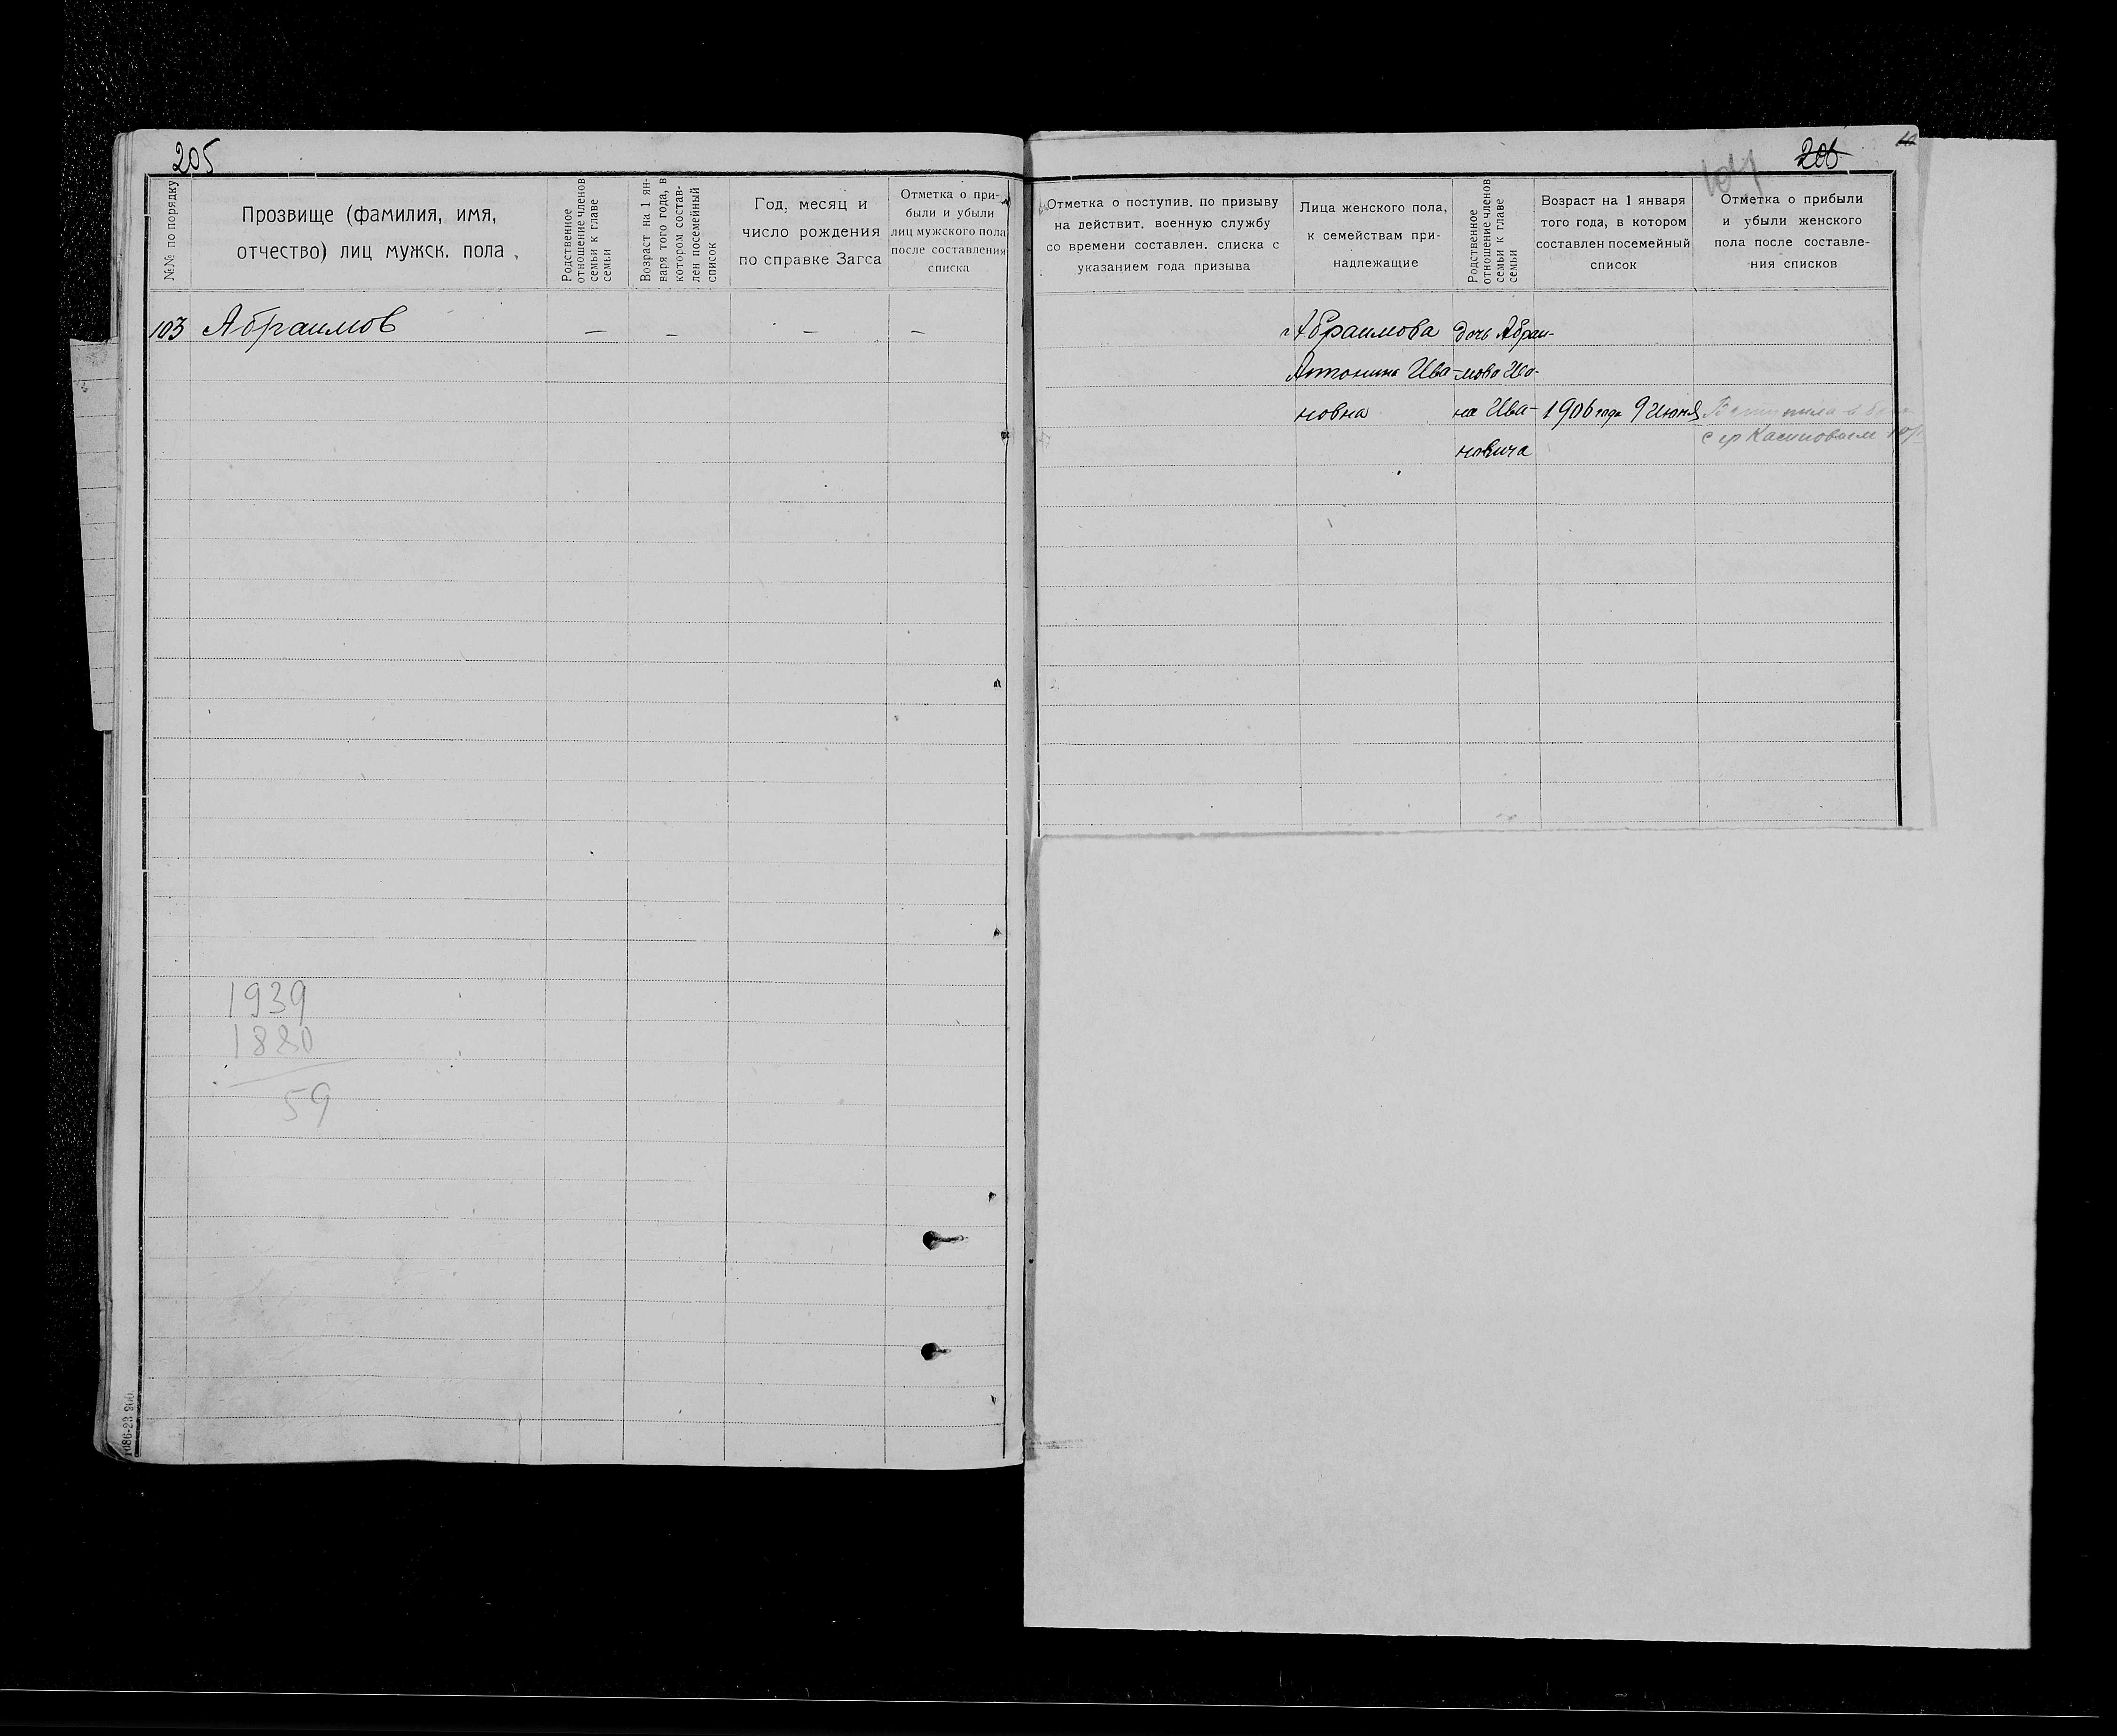 205
№№ по порядку
Прозвище (фамилия, имя,
отчество) лиц мужск. пола
Родственное
отношение членов
семьи к главе
семьи
Возраст на 1 ян-
варя того года, в
котором состав-
лен посемейный
список
Год, месяц и
число рождения
по справке Загса
Отметка о при-
были и убыли
лиц мужского пола
после составления
списка
103 Абраимов — — — —
1939
1880
59
1086-23 900.
206
Отметка о поступив. по призыву
на действит. военную службу
со времени составлен. списка с
указанием года призыва
Лица женского пола,
к семействам при-
надлежащие
Родственное
отношение членов
семьи к главе
семьи
Возраст на 1 января
того года, в котором
составлен посемейный
список
Отметка о прибыли
и убыли женского
пола после составле-
ния списков
Абраимова
Антонина Ива-
новна
дочь Абраи-
мова Ива-
на Ива-
новича
1906 года 9 июня
Вступила в
с гр Касиновым